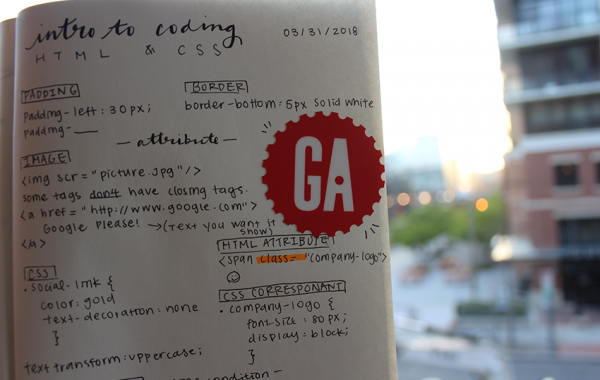 intro to coding
03/31/2018
HTML & CSS
PADDING
padding-left: 30px;
padding-
BORDER
border-bottom: 5px solid white
attribute
IMAGE
<img scr = "picture.jpg"/>
some tags don't have closing tags.
<a href = "http://www.google.com">
Google please! → (Text you want it
show)
</a>
GA
HTML ATTRIBUTE
<span class= "company-logo">
CSS
• social-link {
color: gold
text-decoration: none
}
text transform: uppercase;
CSS CORRESPONANT
• company-logo {
font-size: 80px;
display: block;
}
condition